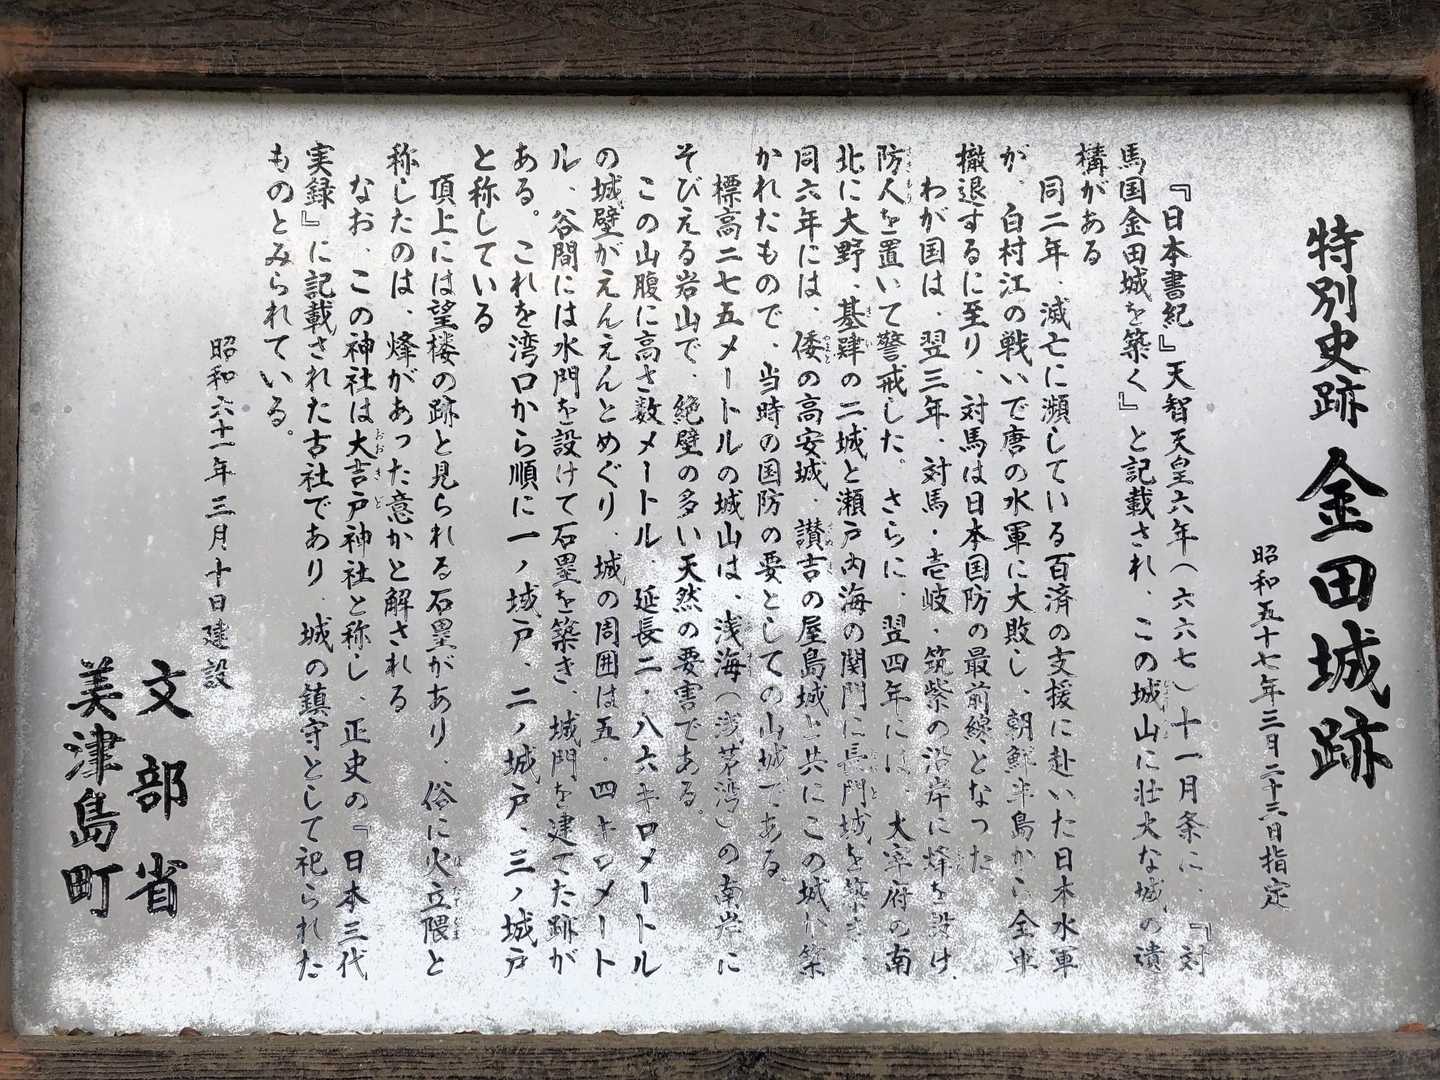 特別史跡 金田城跡
昭和五十七年三月二十三日指定
『日本書紀』天智天皇六年(六六七)十一月条に、『対
馬国金田城を築く』と記載され、この城山に壮大な城の遺
構がある
同二年、滅亡に瀕している百済の支援に赴いた日本水軍
が、白村江の戦いで唐の水軍に大敗し、朝鮮半島から全軍
撤退するに至り、対馬は日本国防の最前線となった
わが国は、翌三年、対馬・壱岐・筑紫の沿岸に烽を設け、
防人を置いて警戒した。さらに、翌四年には、大宰府の南
北に大野、基肄の二城と瀬戸内海の関門に長門城を築き、
同六年には、倭の高安城、讃吉の屋島城と共にこの城が築
かれたもので、当時の国防の要としての山城である。
標高二七五メートルの城山は、浅海(浅茅湾)の南岸に
そびえる岩山で、絶壁の多い天然の要害である。
この山腹に高さ数メートル、延長二・八六キロメートル
の城壁がえんえんとめぐり、城の周囲は五・四キロメート
ル、谷間には水門を設けて石塁を築き、城門を建てた跡が
ある。これを湾口から順に一ノ城戸、二ノ城戸、三ノ城戸
と称している
頂上には望楼の跡と見られる石塁があり、俗に火立隈と
称したのは、烽があった意かと解される
なお、この神社は大吉戸神社と称し、正史の『日本三代
実録』に記載された古社であり、城の鎮守として祀られた
ものとみられている。
昭和六十一年三月十日建設
文部省
美津島町